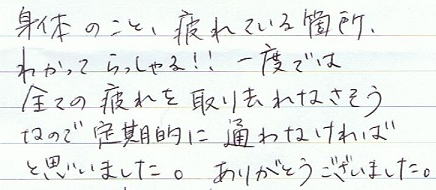 身体のこと、疲れている箇所、
わかってらっしゃる!! 一度では
全ての疲れを取り去れなさそう
なので定期的に通わなければ
と思いました。ありがとうございました。